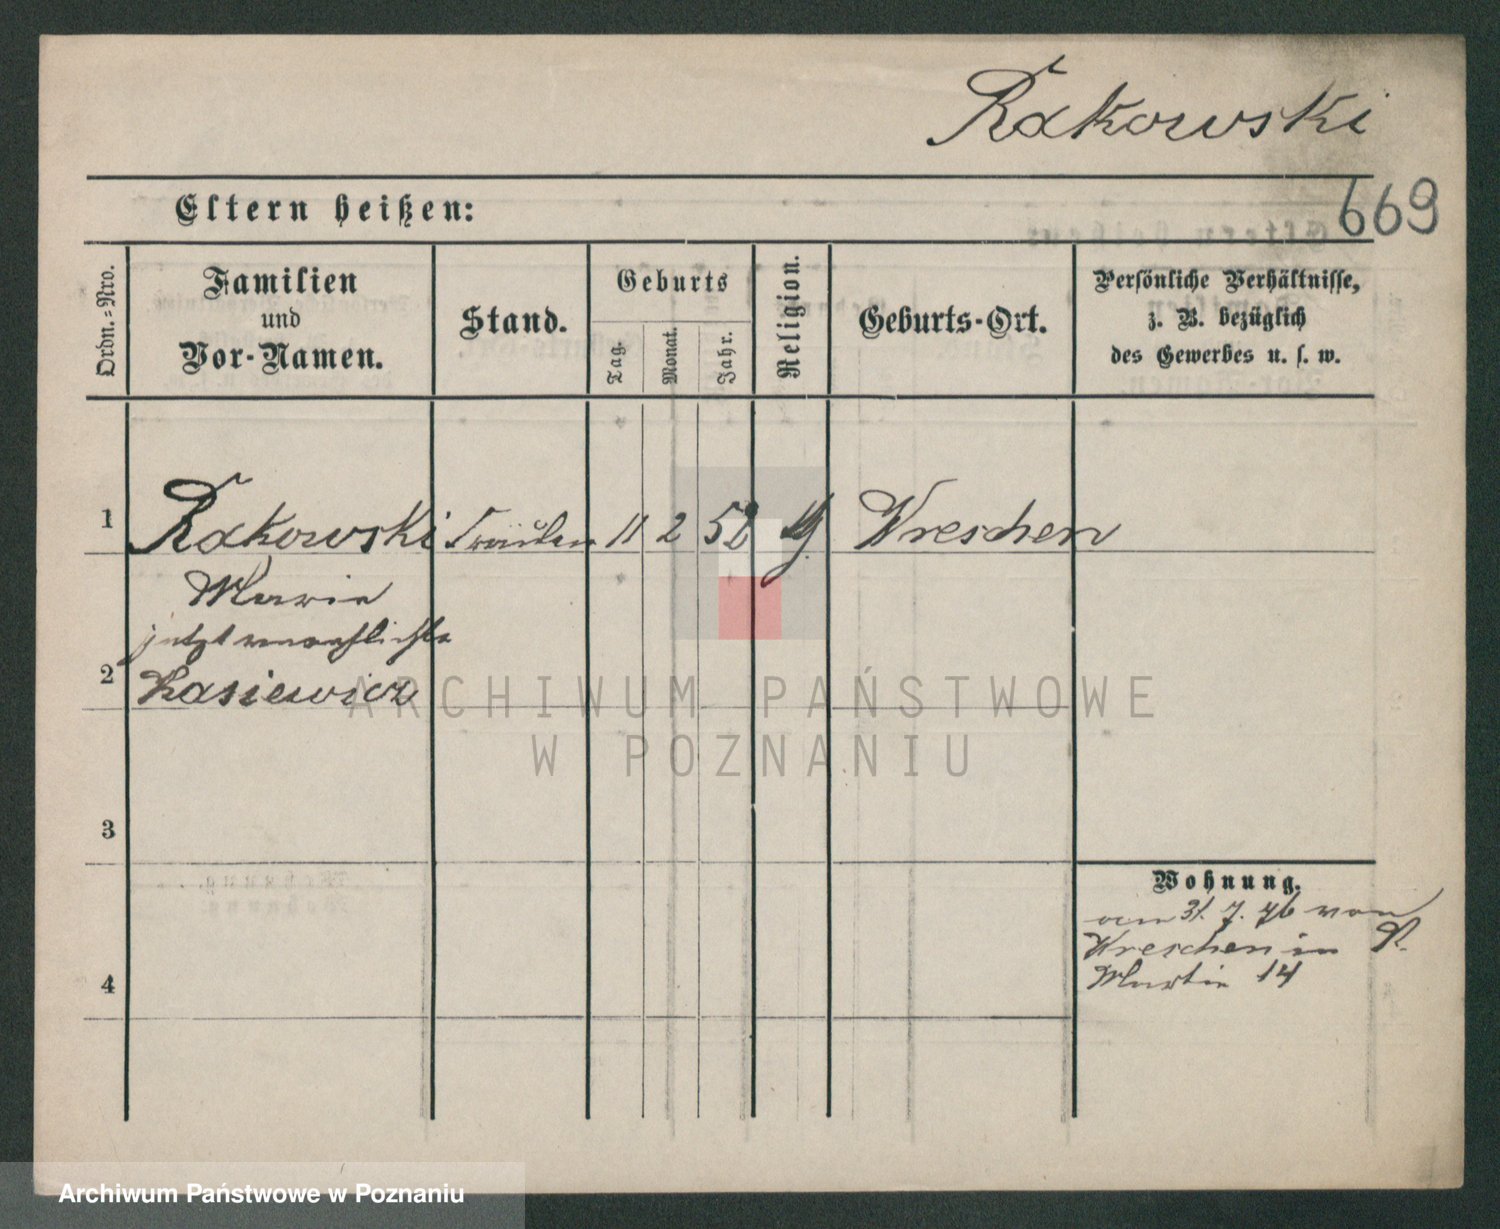 Rakowski
669
Eltern heißen:
Ordn.-Nro.
Familien
und
Vor-Namen.
Stand.
Geburts
Tag.
Monat.
Jahr.
Religion.
Geburts-Ort.
Persönliche Verhältnisse,
z. B. bezüglich
des Gewerbes u. s. w.
1
Rakowski 11 2 52 Wreschen
Marie
jetzt verehlichte
2
Lasiewicz
3
4
Wohnung.
am 31. 7. 76 von
Wreschen in St.
Martin 14
ARCHIWUM PAŃSTWOWE
W POZNANIU
Archiwum Państwowe w Poznaniu